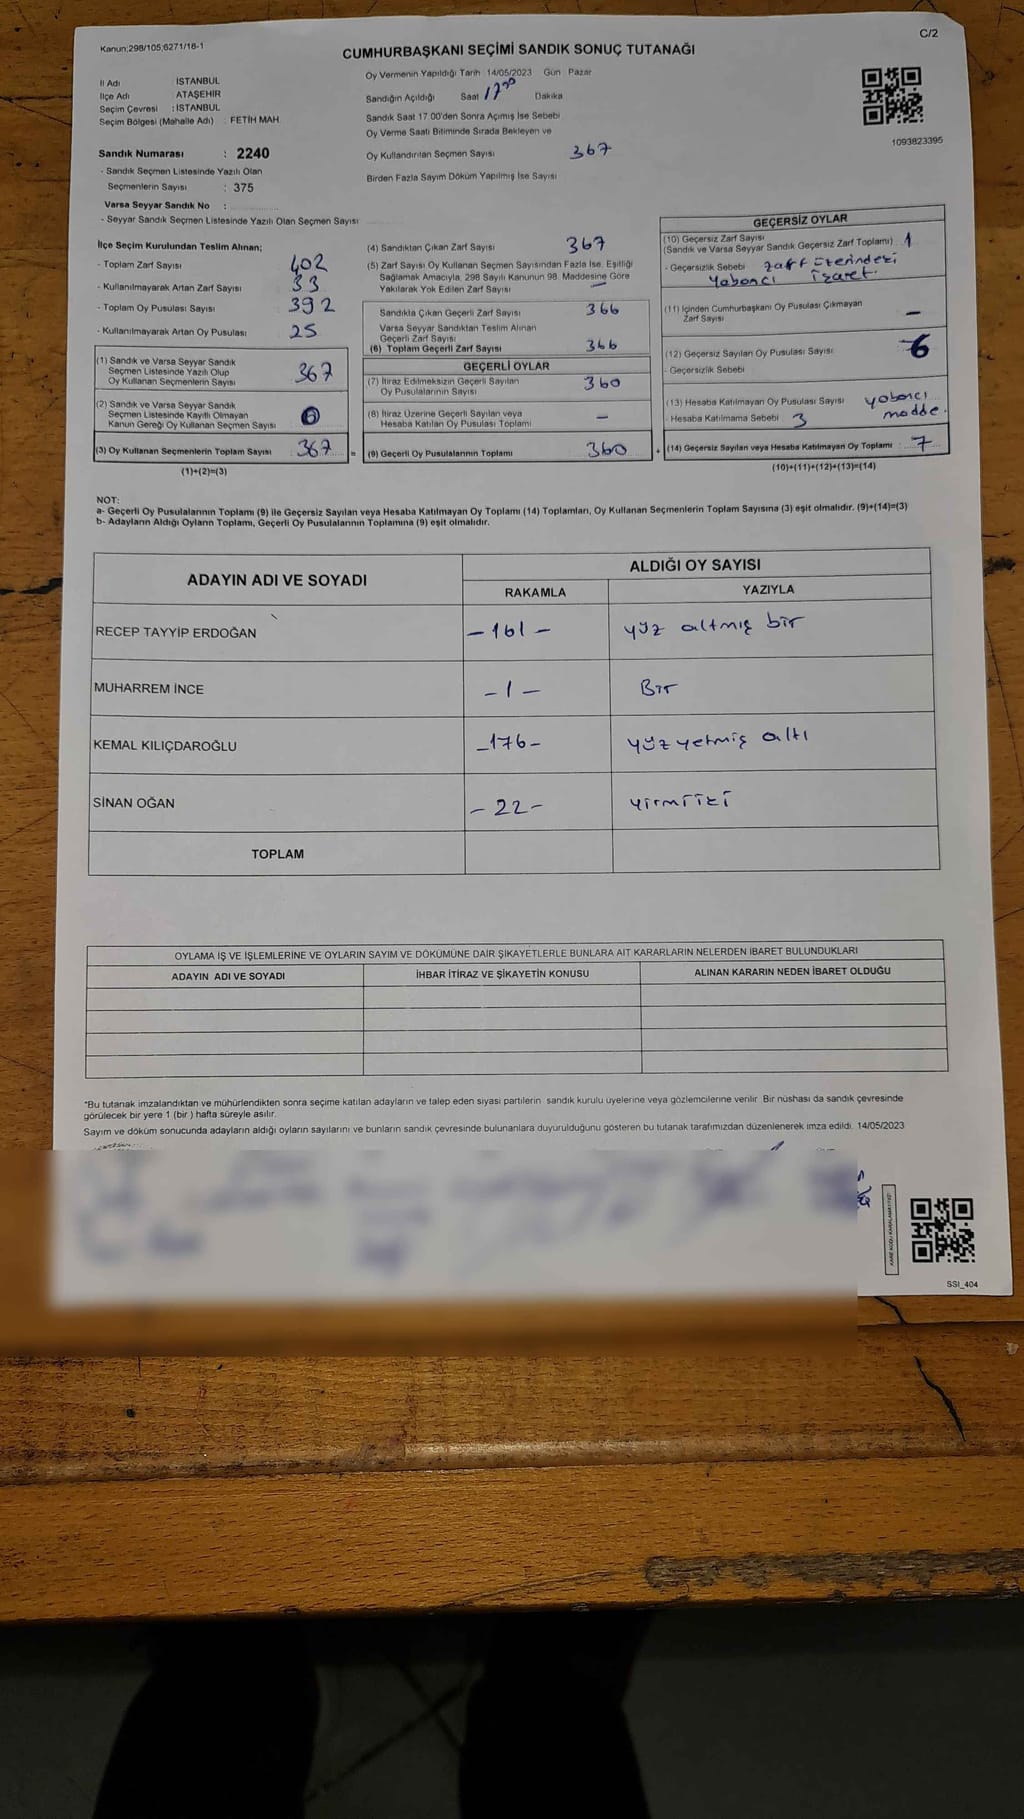 Kanun;298/105;6271/16-1
C/2
CUMHURBAŞKANI SEÇİMİ SANDIK SONUÇ TUTANAĞI
İl Adı : İSTANBUL
İlçe Adı : ATAŞEHİR
Seçim Çevresi : İSTANBUL
Seçim Bölgesi (Mahalle Adı) : FETİH MAH.
Sandık Numarası : 2240
- Sandık Seçmen Listesinde Yazılı Olan
Seçmenlerin Sayısı : 375
Varsa Seyyar Sandık No :
- Seyyar Sandık Seçmen Listesinde Yazılı Olan Seçmen Sayısı
Oy Vermenin Yapıldığı Tarih 14/05/2023 Gün Pazar
Sandığın Açıldığı Saat 17 00 Dakika
Sandık Saat 17.00'den Sonra Açımış İse Sebebi
Oy Verme Saati Bitiminde Sırada Bekleyen ve
Oy Kullandırılan Seçmen Sayısı 367
Birden Fazla Sayım Döküm Yapılmış İse Sayısı
1093823395
İlçe Seçim Kurulundan Teslim Alınan;
- Toplam Zarf Sayısı 402
- Kullanılmayarak Artan Zarf Sayısı 33
- Toplam Oy Pusulası Sayısı 392
- Kullanılmayarak Artan Oy Pusulası 25
(1) Sandık ve Varsa Seyyar Sandık
Seçmen Listesinde Yazılı Olup
Oy Kullanan Seçmenlerin Sayısı 367
(2) Sandık ve Varsa Seyyar Sandık
Seçmen Listesinde Kayıtlı Olmayan
Kanun Gereği Oy Kullanan Seçmen Sayısı
(3) Oy Kullanan Seçmenlerin Toplam Sayısı 367 =
(1)+(2)=(3)
(4) Sandıktan Çıkan Zarf Sayısı 367
(5) Zarf Sayısı Oy Kullanan Seçmen Sayısından Fazla İse, Eşitliği
Sağlamak Amacıyla, 298 Sayılı Kanunun 98. Maddesine Göre
Yakılarak Yok Edilen Zarf Sayısı —
Sandıkla Çıkan Geçerli Zarf Sayısı 366
Varsa Seyyar Sandıktan Teslim Alınan
Geçerli Zarf Sayısı
(6) Toplam Geçerli Zarf Sayısı 366
GEÇERLİ OYLAR
(7) İtiraz Edilmeksizin Geçerli Sayılan
Oy Pusulalarının Sayısı 360
(8) İtiraz Üzerine Geçerli Sayılan veya
Hesaba Katılan Oy Pusulası Toplamı —
(9) Geçerli Oy Pusulalarının Toplamı 360 +
GEÇERSİZ OYLAR
(10) Geçersiz Zarf Sayısı 1
(Sandık ve Varsa Seyyar Sandık Geçersiz Zarf Toplamı)
- Geçersizlik Sebebi zarf üzerindeki
Yabancı İşaret.
(11) İçinden Cumhurbaşkanı Oy Pusulası Çıkmayan
Zarf Sayısı —
(12) Geçersiz Sayılan Oy Pusulası Sayısı 6
- Geçersizlik Sebebi
(13) Hesaba Katılmayan Oy Pusulası Sayısı yabancı
- Hesaba Katılmama Sebebi 3 madde.
(14) Geçersiz Sayılan veya Hesaba Katılmayan Oy Toplamı 7
(10)+(11)+(12)+(13)=(14)
NOT:
a- Geçerli Oy Pusulalarının Toplamı (9) ile Geçersiz Sayılan veya Hesaba Katılmayan Oy Toplamı (14) Toplamları, Oy Kullanan Seçmenlerin Toplam Sayısına (3) eşit olmalıdır. (9)+(14)=(3)
b- Adayların Aldığı Oyların Toplamı, Geçerli Oy Pusulalarının Toplamına (9) eşit olmalıdır.
ADAYIN ADI VE SOYADI
ALDIĞI OY SAYISI
RAKAMLA YAZIYLA
RECEP TAYYİP ERDOĞAN - 161 - yüz altmış bir
MUHARREM İNCE - 1 - Bir
KEMAL KILIÇDAROĞLU - 176 - yüz yetmiş altı
SİNAN OĞAN - 22 - yirmiiki
TOPLAM
OYLAMA İŞ VE İŞLEMLERİNE VE OYLARIN SAYIM VE DÖKÜMÜNE DAİR ŞİKAYETLERLE BUNLARA AİT KARARLARIN NELERDEN İBARET BULUNDUKLARI
ADAYIN ADI VE SOYADI İHBAR İTİRAZ VE ŞİKAYETİN KONUSU ALINAN KARARIN NEDEN İBARET OLDUĞU
*Bu tutanak imzalandıktan ve mühürlendikten sonra seçime katılan adayların ve talep eden siyasi partilerin sandık kurulu üyelerine veya gözlemcilerine verilir. Bir nüshası da sandık çevresinde
görülecek bir yere 1 (bir ) hafta süreyle asılır.
Sayım ve döküm sonucunda adayların aldığı oyların sayılarını ve bunların sandık çevresinde bulunanlara duyurulduğunu gösteren bu tutanak tarafımızdan düzenlenerek imza edildi. 14/05/2023
SSI_404